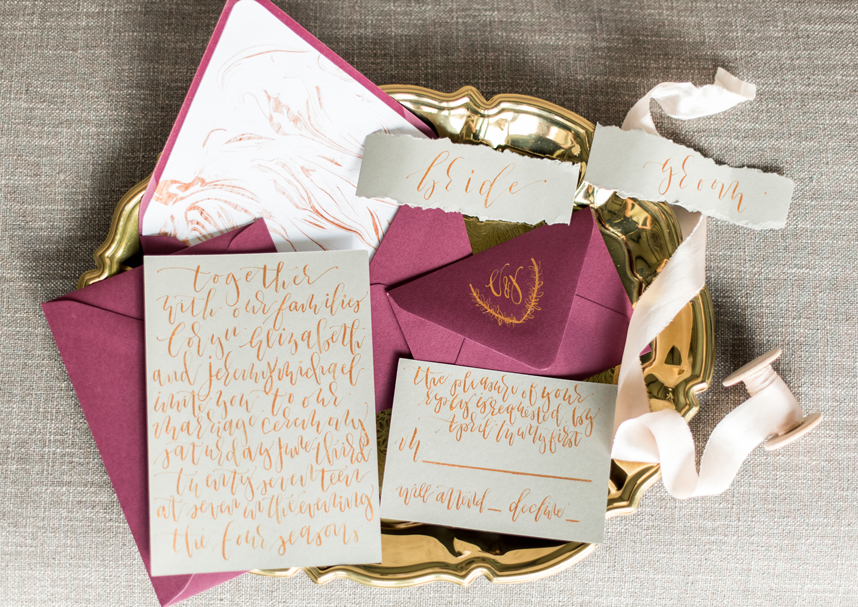 bride
groom
together
with our families
Coryn Elizabeth
and jeremy michael
invite you to our
marriage ceremony
saturday june third
twenty seventeen
at seven in the evening
the four seasons
the pleasure of your
reply is requested by
April twenty first
M
will attend _ decline _